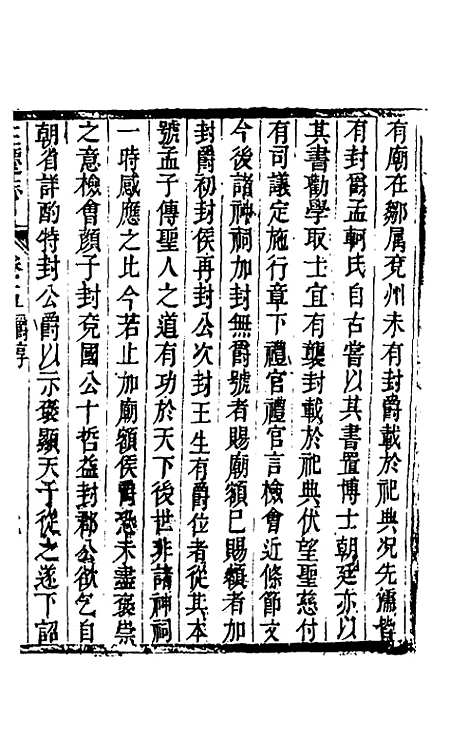 有廟在鄒属兖州未有封爵載於祀典况先儒皆
有封爵孟軻氏自古嘗以其書置博士朝廷亦以
其書勸學取士宜有襲封載於祀典伏望聖慈付
有司議定施行章下禮官禮官言檢會近條節文
今後諸神祠加封無爵號者賜廟額已賜額者加
封爵初封侯再封公次封王生有爵位者從其本
號孟子傳聖人之道有功於天下後世非諸神祠
一時感應之比今若止加廟額侯爵恐未盡褒崇
之意檢會顔子封兖國公十哲益封郡公欲乞自
朝省詳酌特封公爵以示褒顯天子從之遂下詔